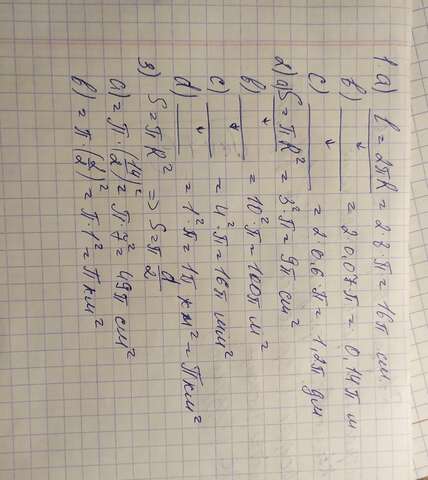 1 a) l = 2πR = 2·8·π = 16π см.
b) ↓ = 2·0,07π = 0,14π м
c) ↓ = 2·0,6·π = 1,2π дм
2) a) S = π·R² = 3²·π = 9π см²
b) ↓ = 10²·π = 100π м²
c) ↓ = 4²·π = 16π мм²
d) ↓ = 1²·π = 1π км² = π км²
3) S = πR² => S = π d/2
a) = π·(14/2)² = π·7² = 49π см²
b) = π·(2/2)² = π·1² = π км²